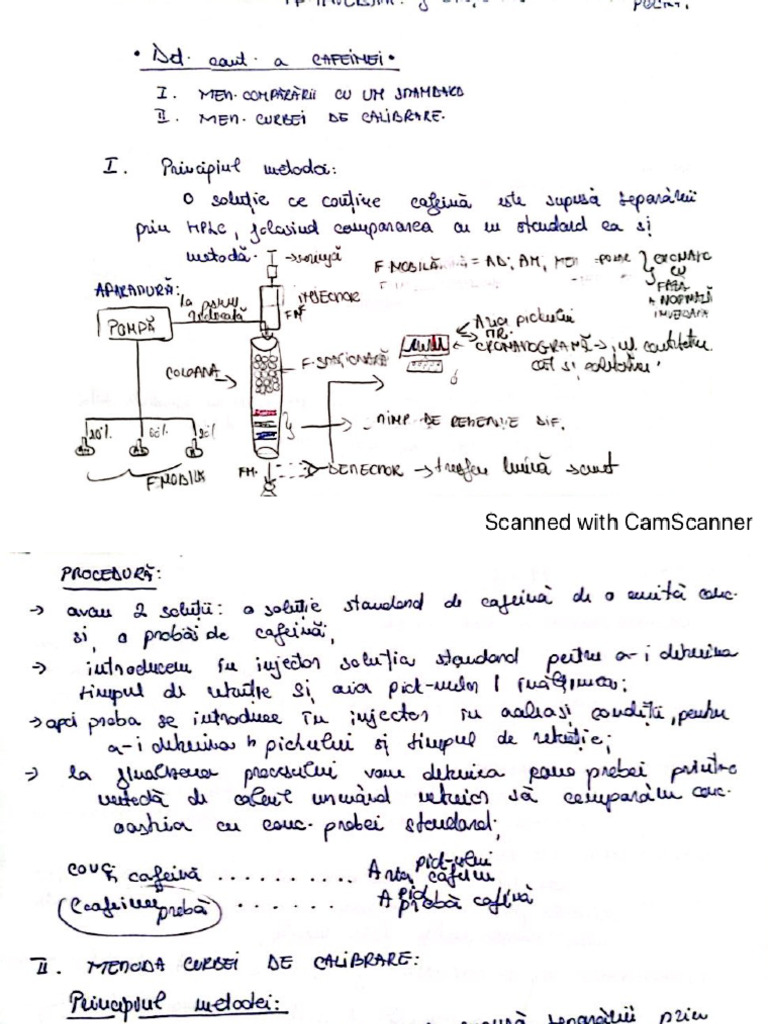 • Det. cant. a CAFEINEI •
I. MET. COMPARĂRII CU UN STANDARD
II. MET. CURBEI DE CALIBRARE.
I. Principiul metodei:
O soluție ce conține cafeină este supusă separării
prin HPLC, folosind compararea cu un standard ca și
metodă.
→ seringă
F. MOBILĂ = AD; AM, MET
CU
FAZA
NORMALĂ
INVERSATĂ
APARADURĂ:
la
INJECTOR
FM
POMPĂ
Aria pickului
TR.
CROMATOGRAMĂ →
COLOANĂ →
F. STAȚIONARĂ
cât și
TIMP DE RETENȚIE DIF.
20% 60% 20%
F. MOBILĂ
FM.
DETECTOR →
Scanned with CamScanner
PROCEDURĂ:
→ avem 2 soluții: o soluție standard de cafeină de o anumită conc.
și, o probă de cafeină;
→ introducem în injector soluția standard pentru a-i determina
timpul de retenție și aria pick-urilor / înălțimea;
→ apoi proba se introduce în injector în aceleași condiții, pentru
a-i determina h pickului și timpul de retenție;
→ la finalizarea procesului vom determina conc probei printr-o
metodă de calcul urmând ulterior să comparăm conc.
acesteia cu conc. probei standard;
conc. cafeină .......... Aria pick-ului cafeină
Ccafeinei probă ...... A pick probă cafeină
II. METODA CURBEI DE CALIBRARE:
Principiul metodei:
separării prin